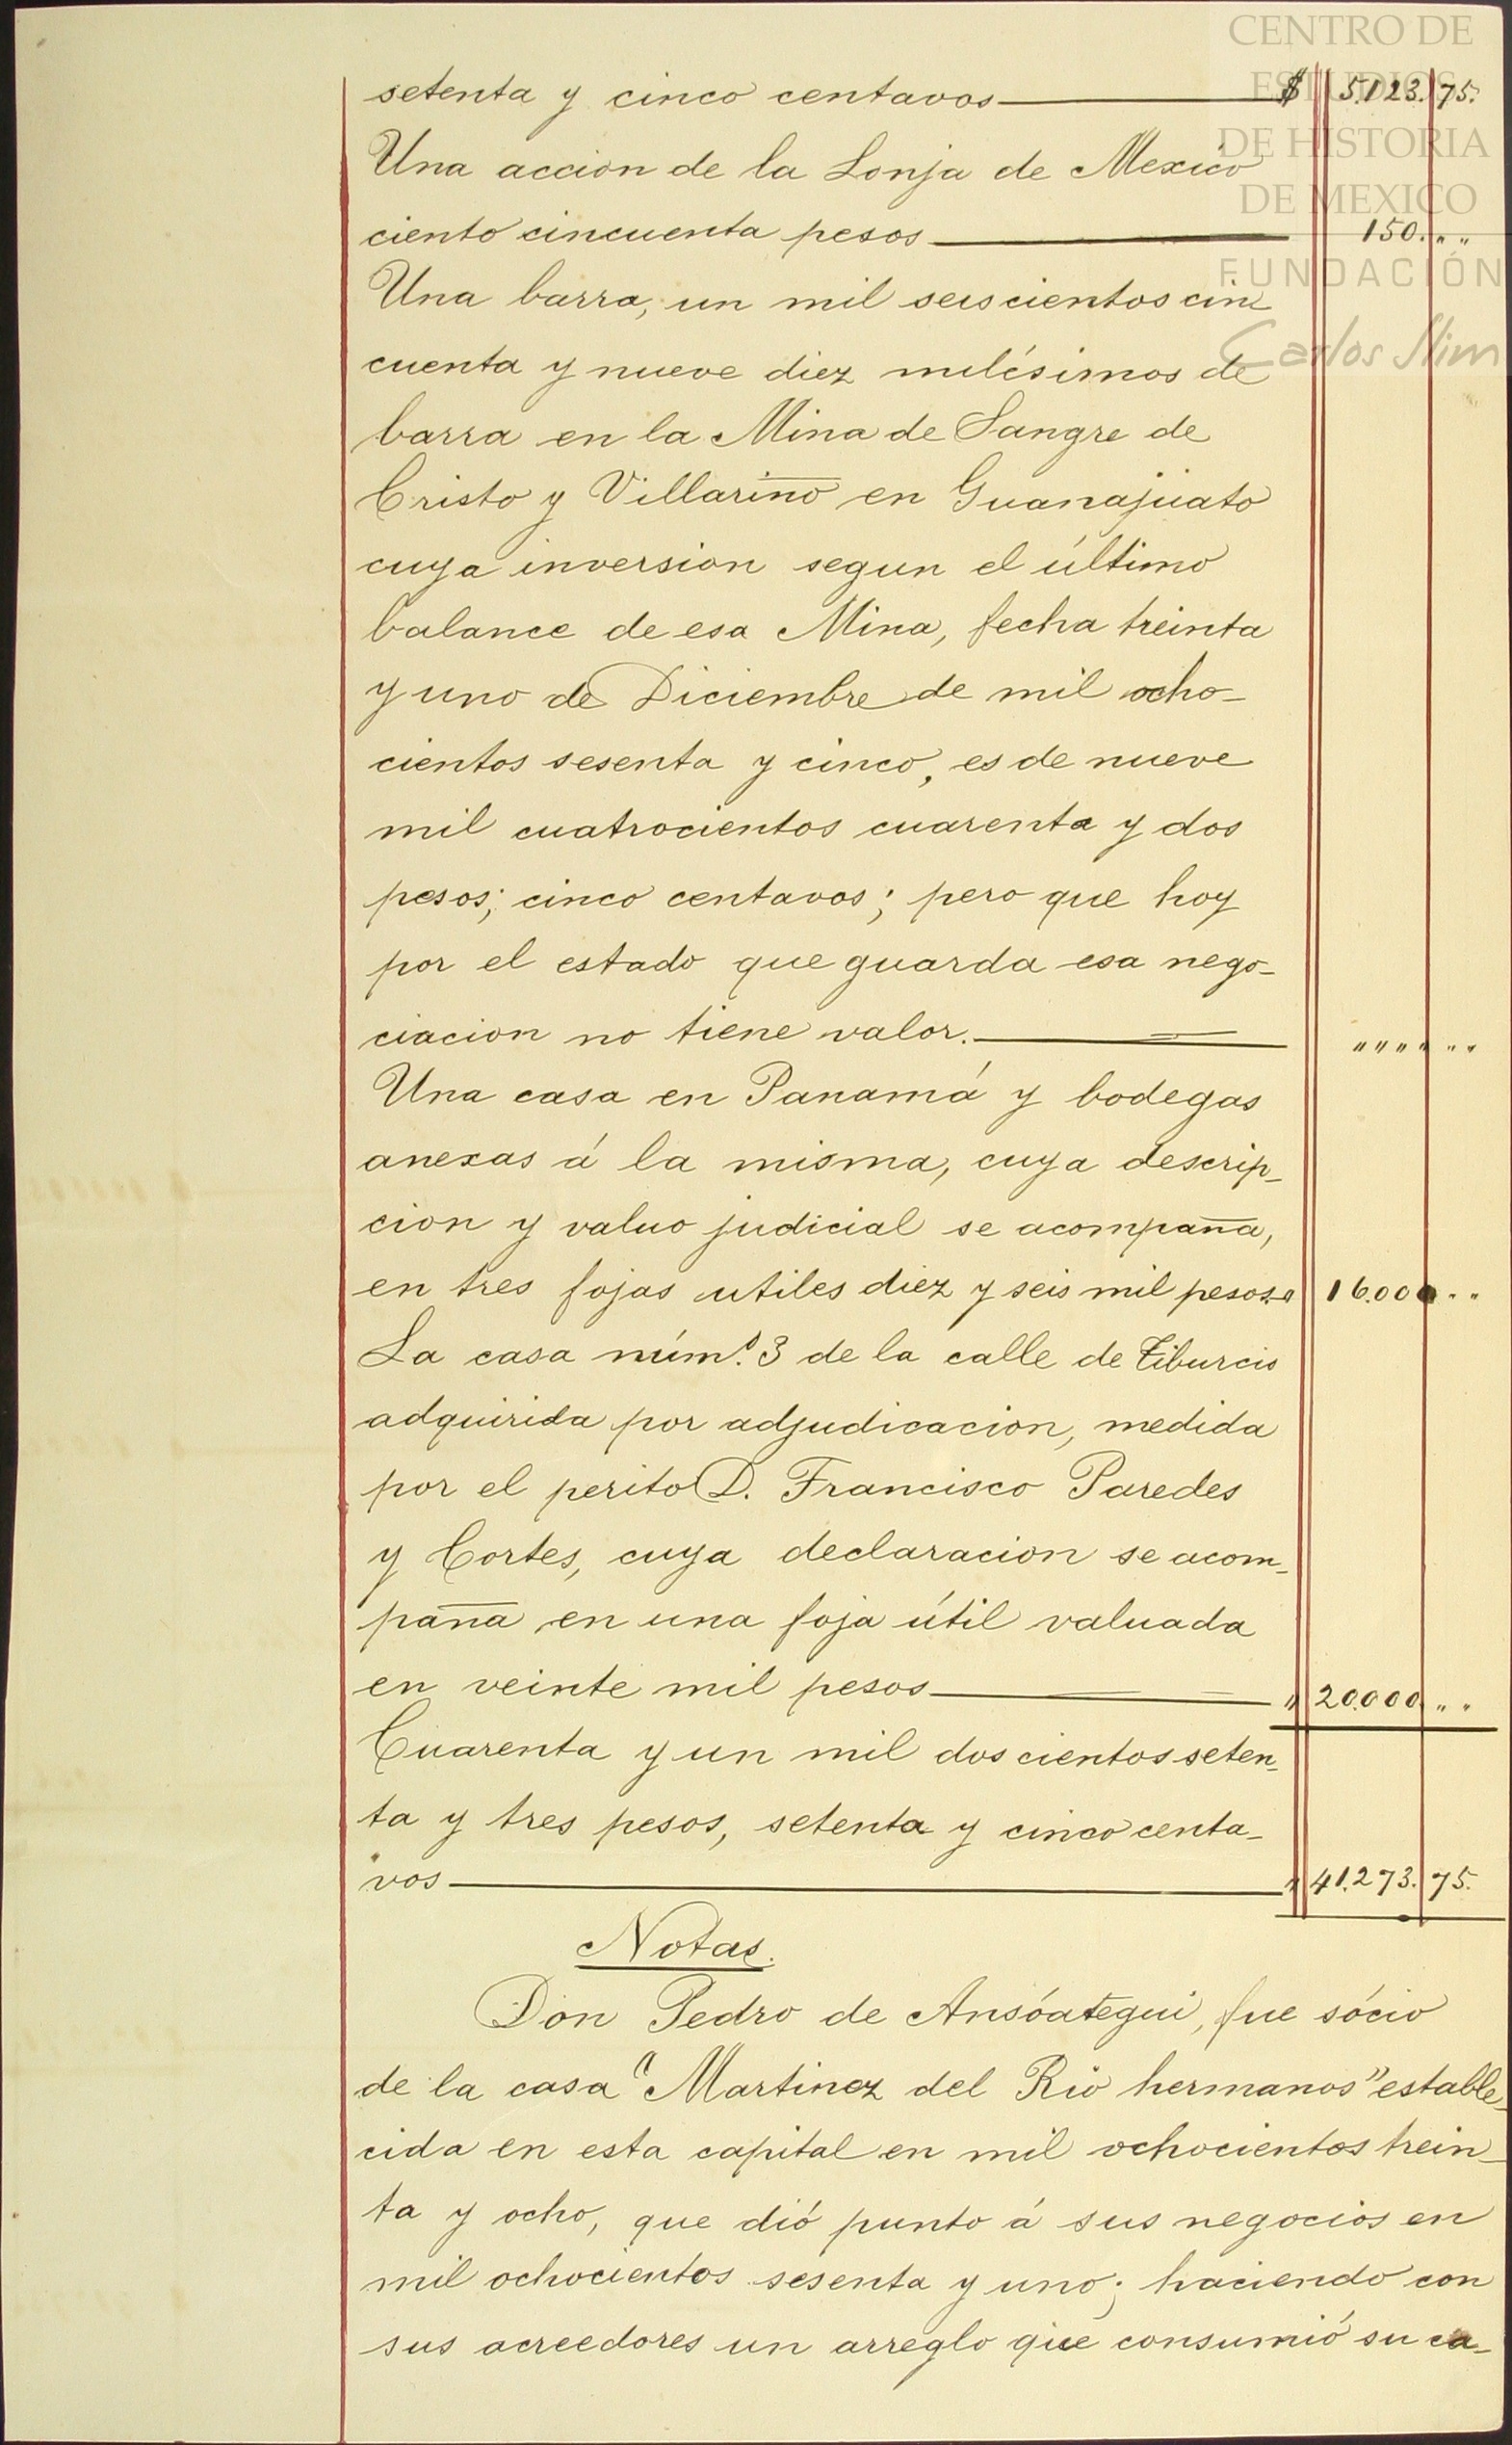 CENTRO DE
ESTUDIOS
DE HISTORIA
DE MEXICO
FUNDACIÓN
Carlos Slim
setenta y cinco centavos $ 5.123. 75.
Una accion de la Lonja de Mexico
ciento cincuenta pesos 150. " "
Una barra, un mil seiscientos cin
cuenta y nueve diez milésimos de
barra en la Mina de Sangre de
Cristo y Villariño en Guanajuato
cuya inversion segun el último
balance de esa Mina, fecha treinta
y uno de Diciembre de mil ocho-
cientos sesenta y cinco, es de nueve
mil cuatrocientos cuarenta y dos
pesos; cinco centavos; pero que hoy
por el estado que guarda esa nego-
ciacion no tiene valor. " " " " " "
Una casa en Panamá y bodegas
anexas á la misma, cuya descrip-
cion y valuo judicial se acompaña,
en tres fojas utiles diez y seis mil pesos " 16.000 " "
La casa núm.º 3 de la calle de Tiburcio
adquirida por adjudicacion, medida
por el perito D. Francisco Paredes
y Cortes, cuya declaracion se acom-
paña en una foja útil valuada
en veinte mil pesos " 20.000 " "
Cuarenta y un mil doscientos seten-
ta y tres pesos, setenta y cinco centa-
vos " 41.273. 75.
Notas.
Don Pedro de Ansóategui, fue sócio
de la casa "Martinez del Rio hermanos" estable-
cida en esta capital en mil ochocientos trein-
ta y ocho, que dió punto á sus negocios en
mil ochocientos sesenta y uno; haciendo con
sus acreedores un arreglo que consumió su ca-